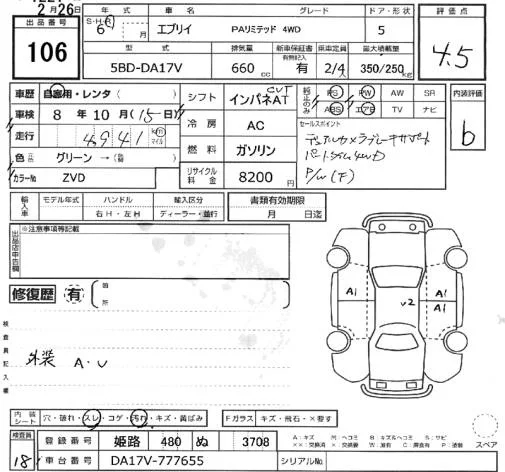 2月26日
出品番号
106
年式
S・H・R
6年 月
車名
エブリイ
グレード
PAリミテッド 4WD
ドア・形状
5
評価点
4.5
型式
5BD-DA17V
排気量
660 cc
新車保証書
有無記入
有
乗車定員
2/4人
最大積載量
350/250 kg
車歴 自家用・レンタ
( )
車検 8年 10月(15日)
走行 4941 km マイル
色 グリーン →(替 )
カラーNo ZVD
シフト インパネAT CVT
冷房 AC
燃料 ガソリン
リサイクル料金 8200円
純正のみ
PS PW AW SR
ABS エアB TV ナビ
セールスポイント
デュアルカメラブレーキサポート
パートタイム4WD
P/W(F)
内装評価
b
輸入車
モデル年式
ハンドル
右H・左H
輸入区分
ディーラー・並行
書類有効期限
月 日迄
出品店申告欄
※注意事項等記載
修復歴 有
箇所
検査員記入欄
外装 A・U
A1
A1
U2
内装シート 穴・破れ・スレ・コゲ・汚れ・キズ・黄ばみ
Fガラス キズ・飛石・×要す
検査員
18
登録番号 姫路 480 ぬ 3708
車台番号 DA17V-777655
シリアルNo
A:キズ M:ヘコミ B:キズ&ヘコミ S:サビ
スペア